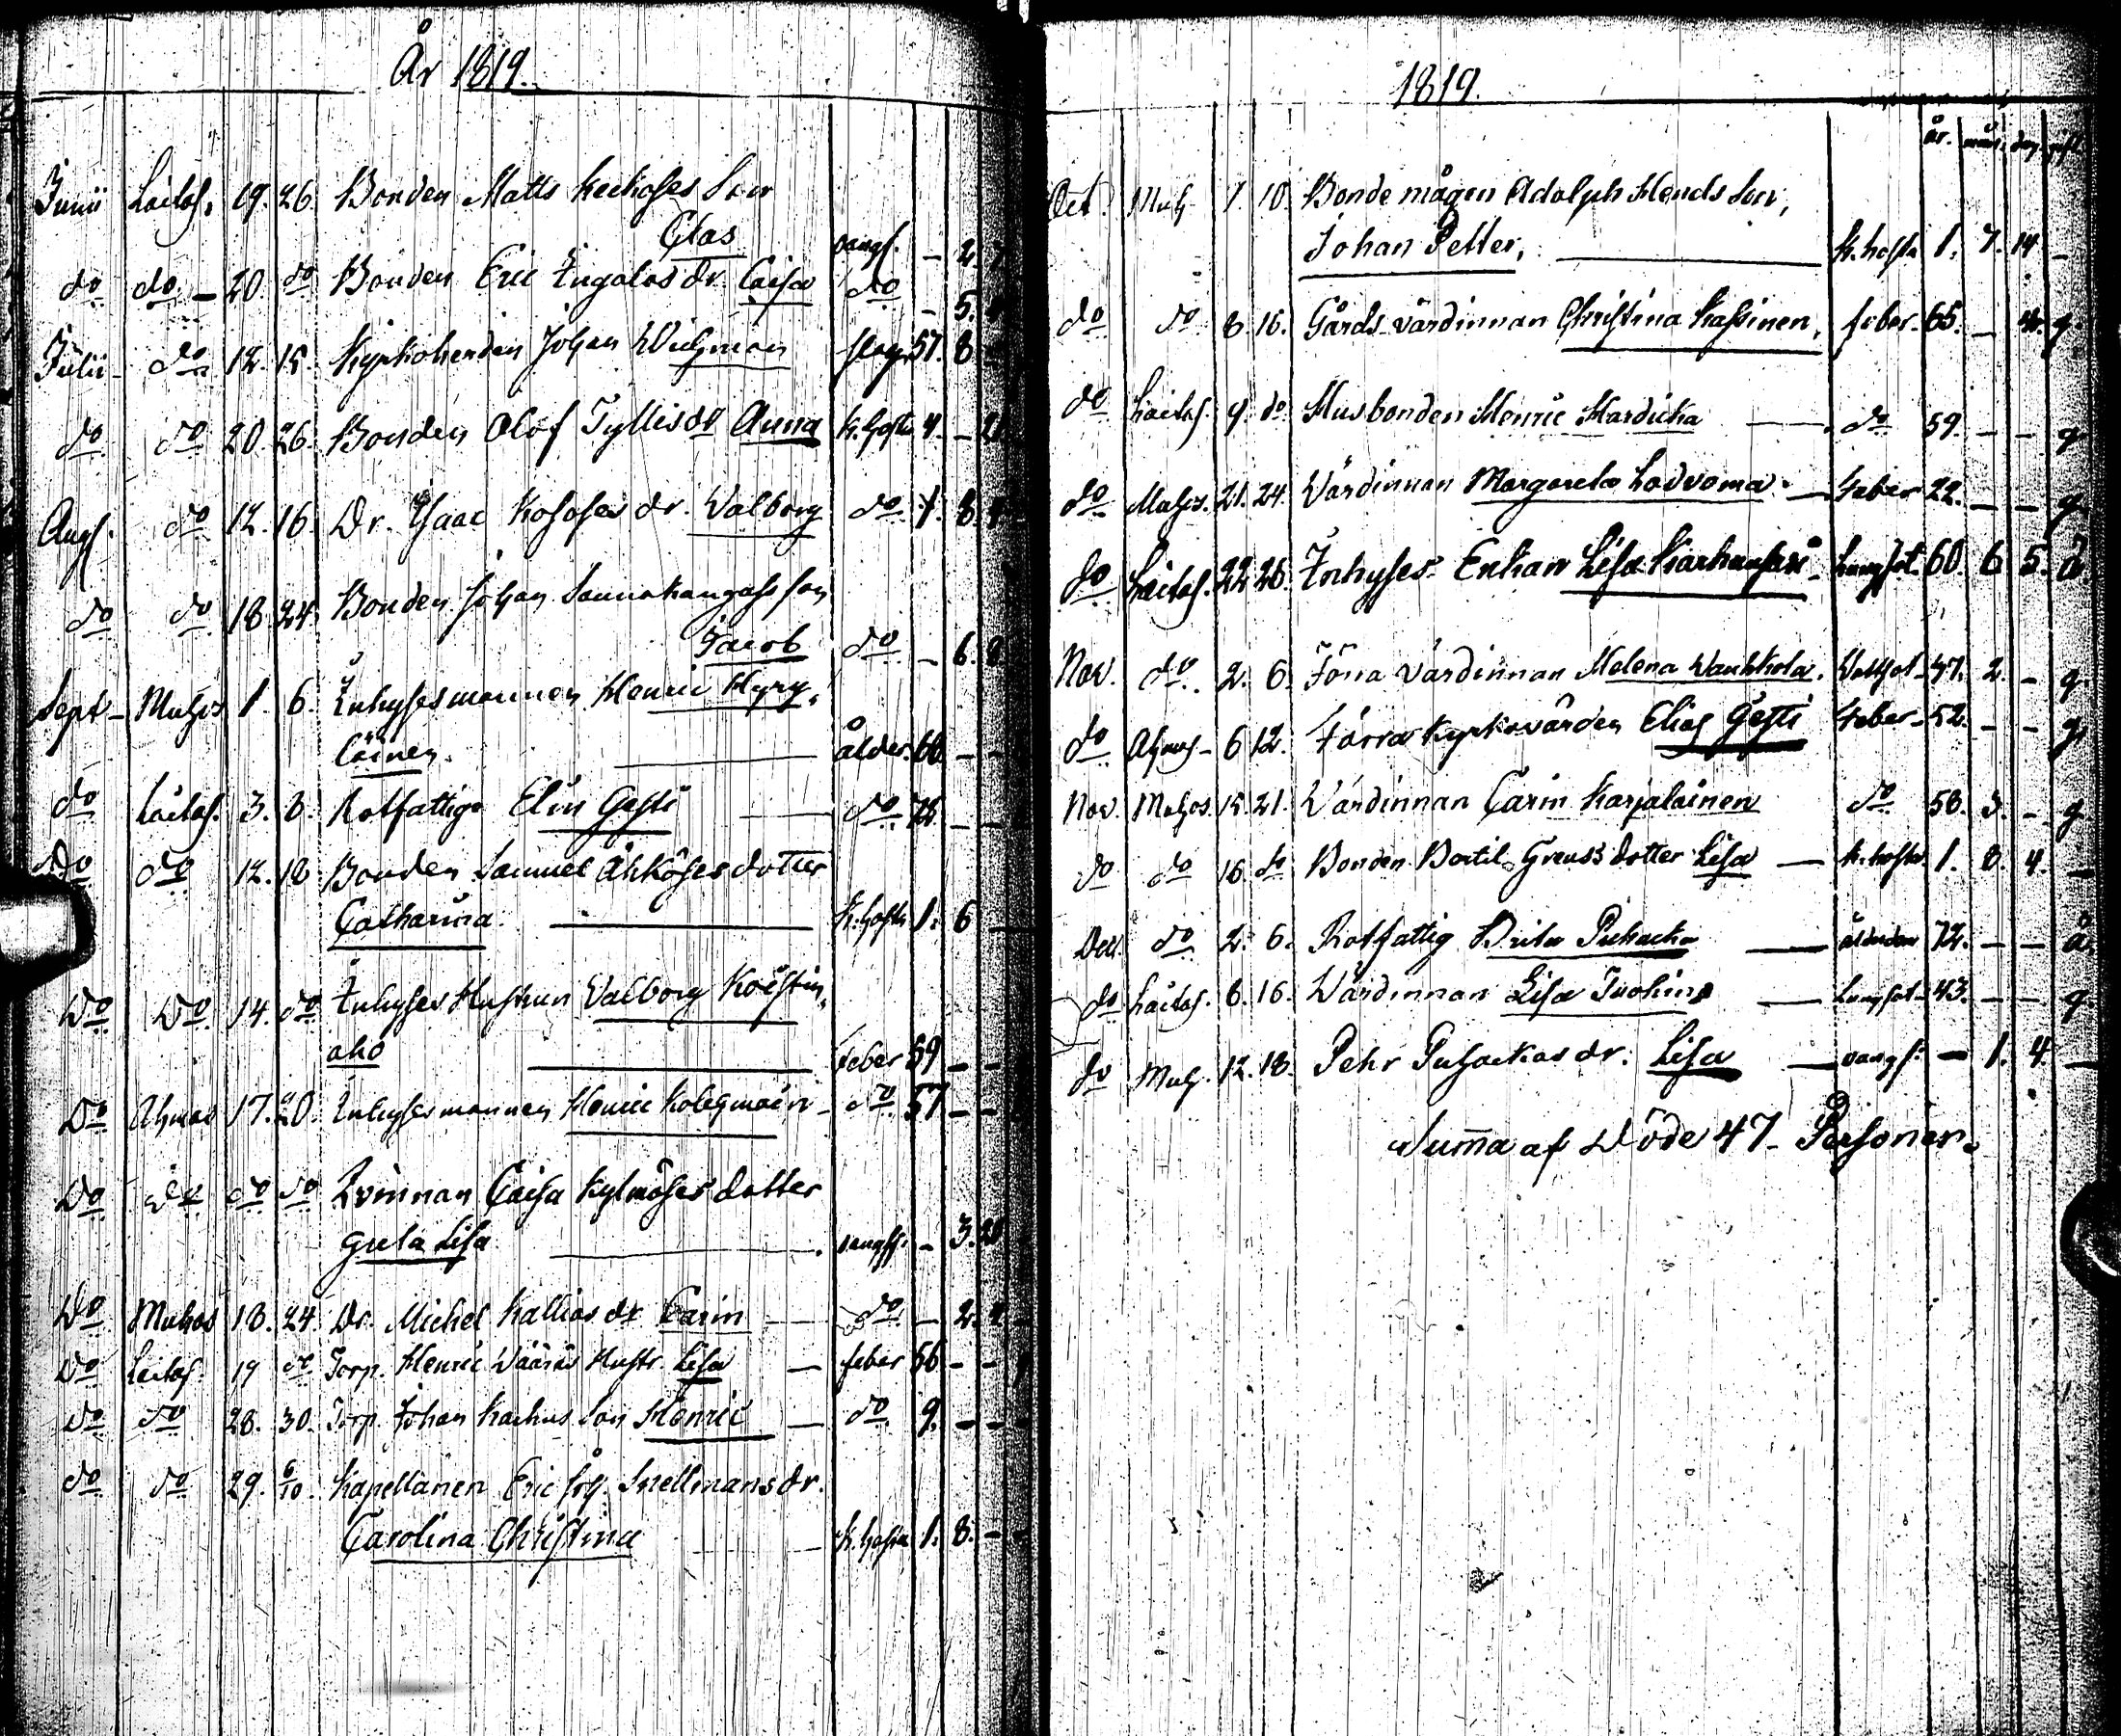 År 1819.
Junii Laitas. 19. 26. Bonden Matts Keckoses Son
Clas slagf. - 2.
do do - 20. do Bonden Eric Ingalas dr. Caisa do - 5.
Julii do 12. 15. Kyrkoherden Johan Wichman slag 57. 8
do do 20. 26. Bonden Olof Tyllis dr Anna K. hosta 4. -
Aug. do 12. 16. Dr. Isaac Kososes dr. Valborg do 1. 8.
do do 18. 24. Bonden Johan Sannakangas son
Jacob do - 6.
Sept - Muhos 1. 6. Inhyses mannen Henric Hyry,
läinen. ålder. 66. - -
do Laitas. 3. 8. Rotfattige Elin Gesti do - -
Do do 12. 18 Bonden Samuel Ahkoses dotter
Catharina. K. hosta 1. 6 -
Do Do 14. do Inhyses Hustrun Valborg Koistin,
aho feber 59 - -
Do Ahmas 17. 20. Inhyses mannen Henric - do 57 - -
Do do do do Qvinnan Caisa Kylmäses dotter
Greta Lisa slagf. - 3.
Do Muhos 18. 24. Dr. Michel Kallios dr Carin do - 2.
Do Laitas. 19 do Torp. Henric Wääräs Hustr. Lisa - feber 56 - -
Do do 28. 30. Torp. Johan Karhus Son Henric - do 9. - -
do do 29. 6/10. Kapellanen Eric Joh. Snellmans dr.
Carolina Christina K. hosta 1. 8. -
1819.
år. mån. dag. gift.
Oct. Muh. 7. 10. Bonde mågen Adolph Hends Son,
Johan Petter, K. hosta 1. 7. 14. -
do do 8. 16. Gårds värdinnan Christina Kassinen, feber. 65. - g.
do Laitas. 9. do Husbonden Henric Hardicka do 59. - - g
do Muhos. 21. 24. Värdinnan Margareta Lovvoma. - Feber 22. - - g
do Laitas. 22 26. Inhyses Enkan Lisa Lungsot. 60. 6 5.
Nov. do 2. 6. Förra värdinnan Helena Wanhkola. Vattsot - 47. 2. - g.
do Ahmas - 6 12. Förra Kyrkovärden Elias Gesti Feber - 52. - - g
Nov. Muhos. 15. 21. Värdinnan Carin Karjalainen do 58. 3. - g
do do 16. do Bonden Bertil Greus's dotter Lisa - K. hosta 1. 8. 4. -
Dec. do 2. 6. Rotfattig Brita - ålderdom 72. - -
do Laitas. 6. 16. Värdinnan Lisa - Lungsot - 43. - - g
do Muh. 12. 18. Pehr Puhackas dr. Lisa - slagf. - 1. 4 -
Summa af Döde 47 - Personer.